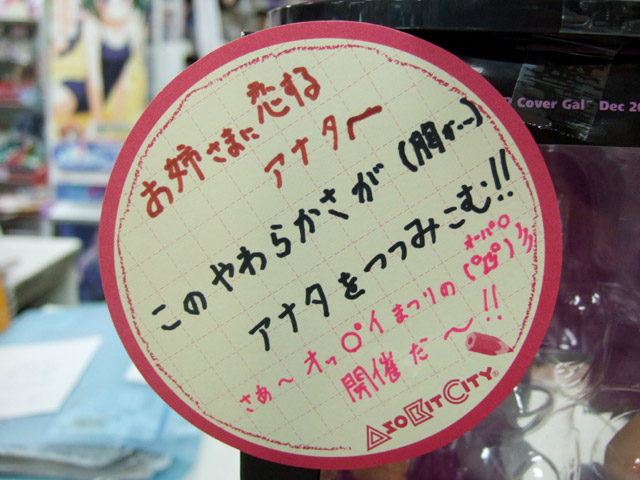 お姉さまに恋する
アナター
このやわらかさが(胸が…)
アナタをつつみこむ!!
オーパイ○
さぁ〜オッ○゚イまつりの
開催だ〜!!
ASOBITCITY
Cover Gal" Dec 20